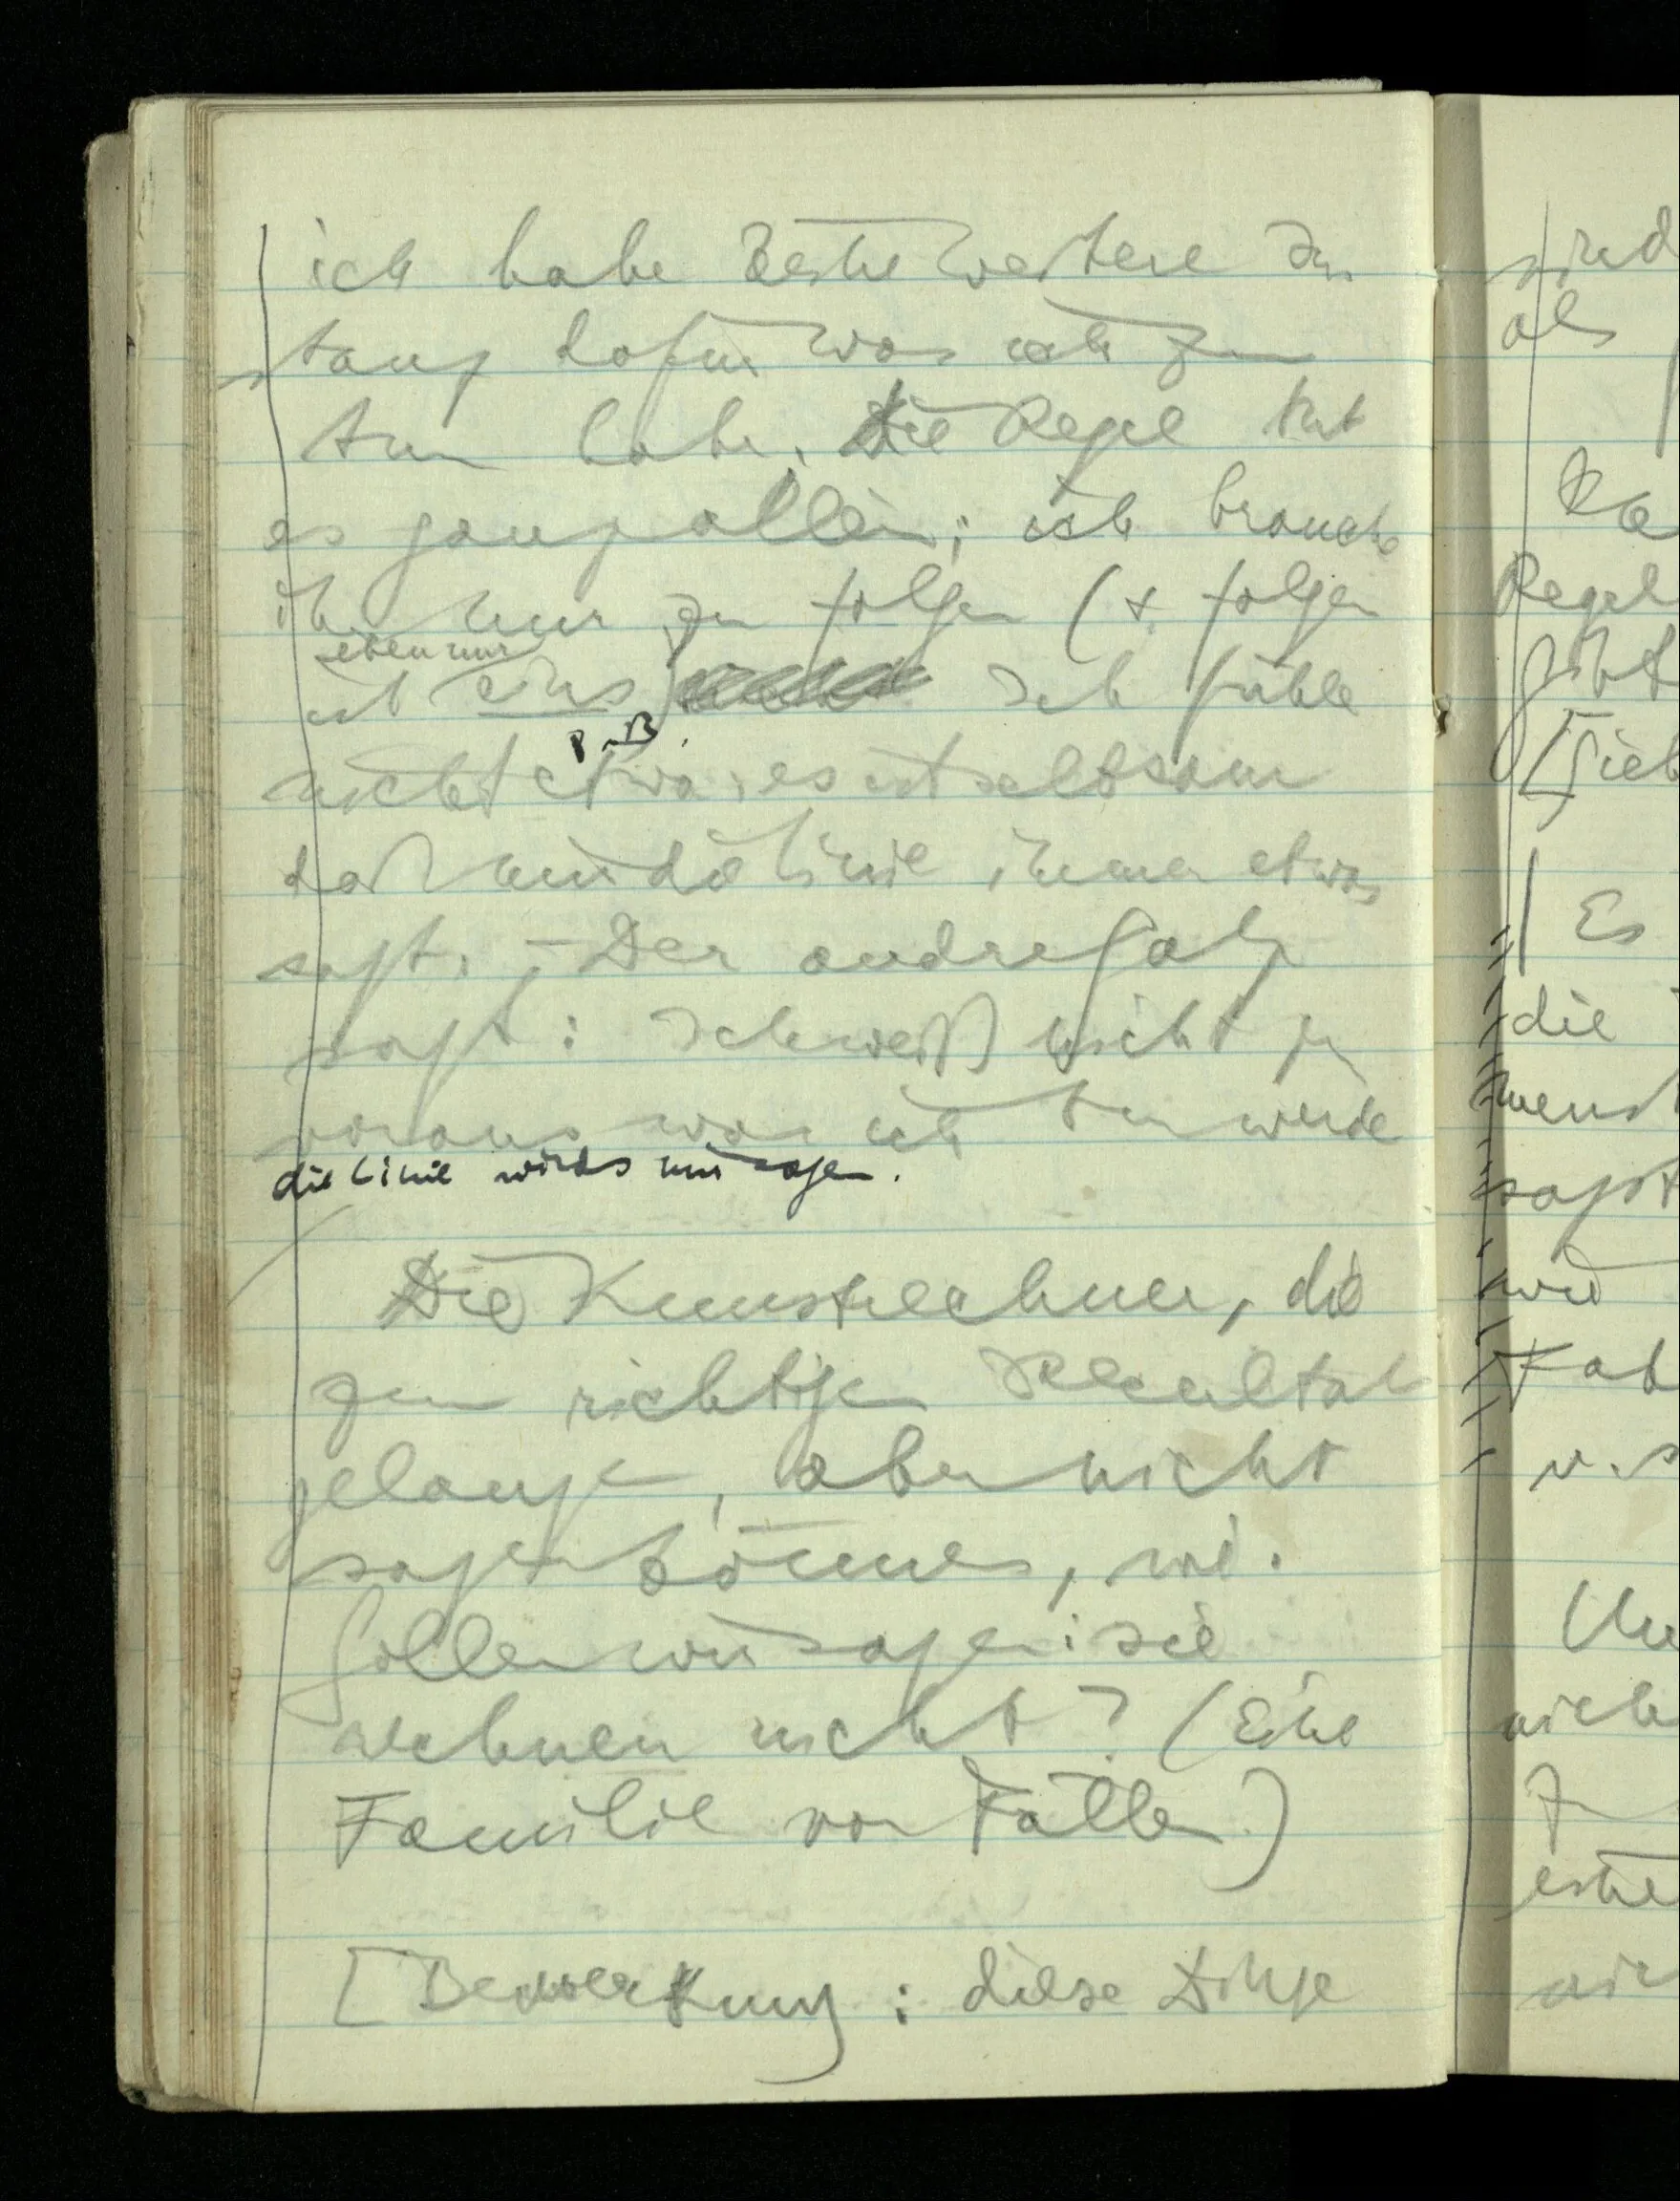 ich habe keine weitere In
stanz dafür was ich zu
tun habe. Die Regel tut
es ganz allein; ich brauche
ihr nur zu folgen (& folgen
eben nur
ist eins) Ich fühle
z.B.
nicht etwa, es ist seltsam
daß mir die Linie immer etwas
sagt. – Der andre Satz
sagt: Ich weiß nicht zu
voraus was ich tun werde
die Linie wirds mir sagen.
Die Kunstrechner, die
zum richtigen Resultat
gelangen, aber nicht
sagen können, wie.
Sollen wir sagen: sie
rechnen nicht? (Eine
Familie von Fällen)
[Bemerkung: diese Dinge
sind
als
Regel
gibt
Es
die